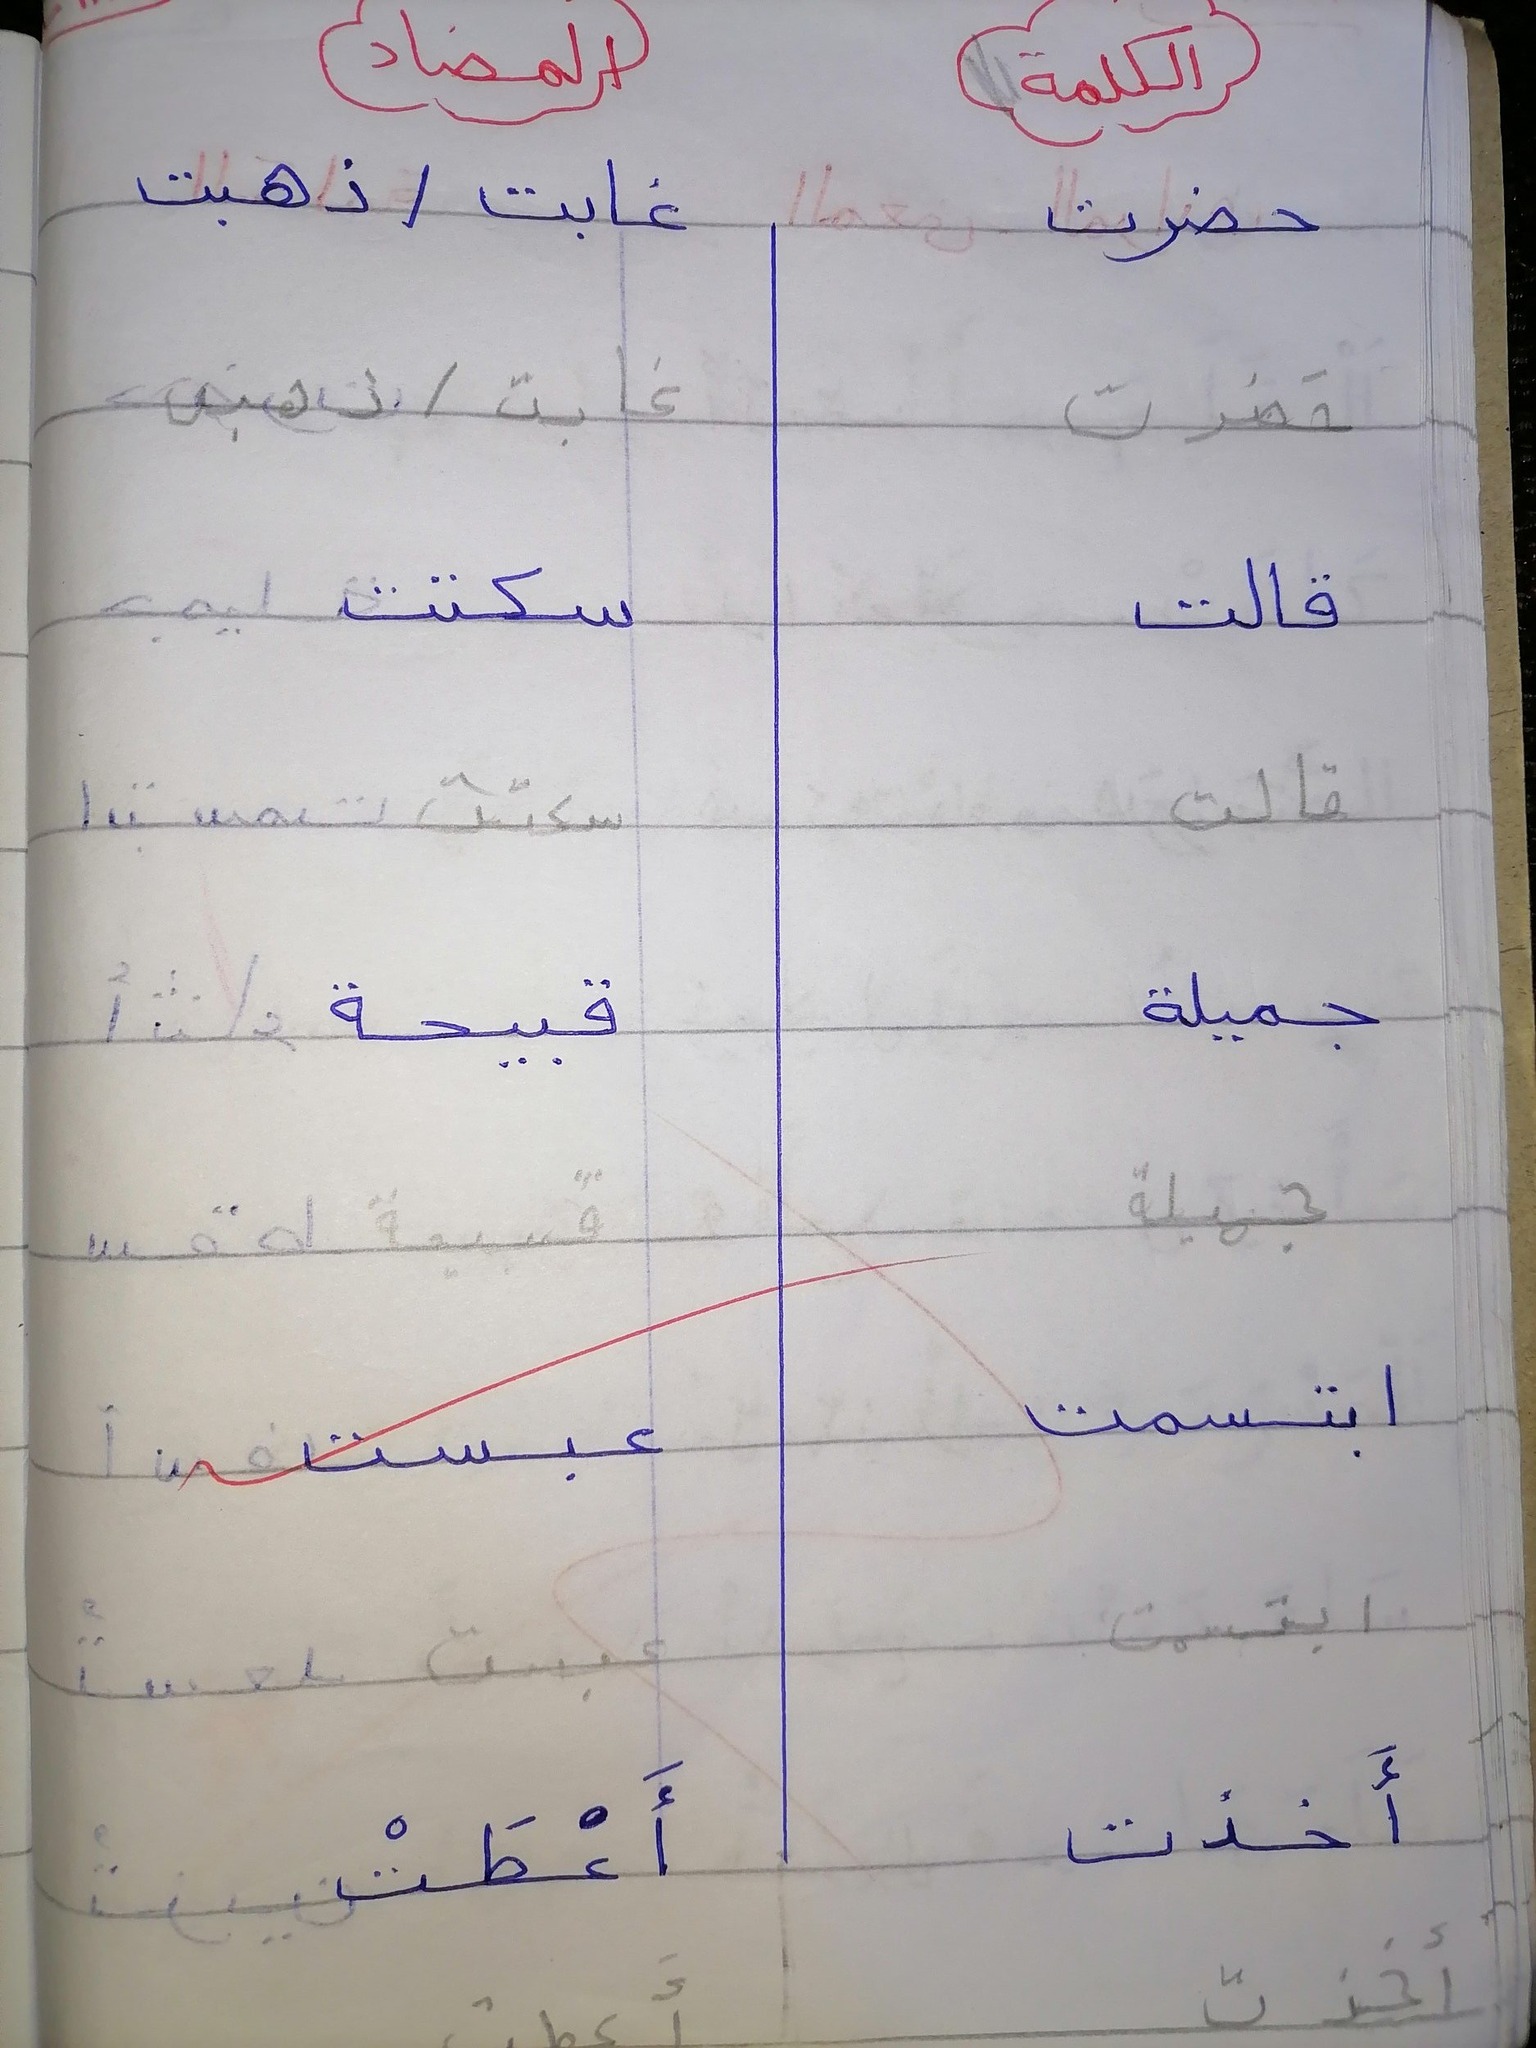 الكلمة المضاد
حضرت غابت / ذهبت
حَضرت غابت /
قالت سكتت
قالت سكتت
جميلة قبيحة
جميلة قبيحة
ابتسمت عبست
ابتسمت عبست
أَخذت أَعْطَتْ
أخذت أَعطت